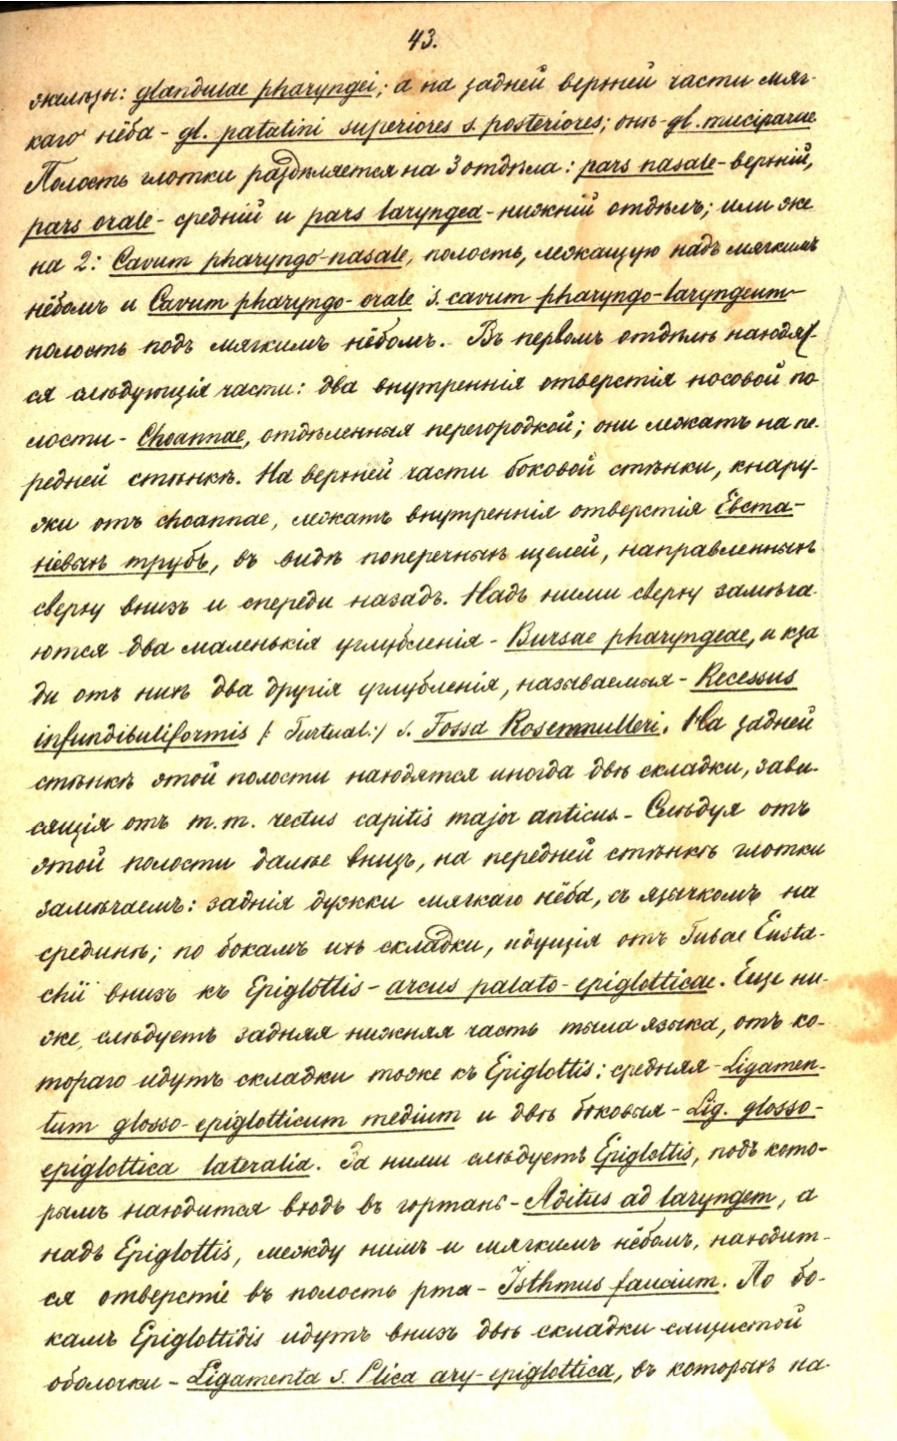 43.
железы: glandulae pharyngei; а на задней верхней части мяг-
каго нёба - gl. patatini superiores s. posteriores; онѣ - gl. muciparae
Полость глотки раздѣляется на 3 отдѣла: pars nasale - верхній,
pars orale - средній и pars laryngea - нижній отдѣлъ; или же
на 2: Cavum pharyngo-nasale, полость, лежащую надъ мягкимъ
нёбомъ и Cavum pharyngo-orale s. cavum pharyngo-laryngeum
полость подъ мягкимъ нёбомъ. Въ первомъ отдѣлѣ находят-
ся слѣдующія части: два внутреннія отверстія носовой по-
лости - Choannae, отдѣленныя перегородкой; они лежатъ на пе-
редней стѣнкѣ. На верхней части боковой стѣнки, кнару-
жи отъ choannae, лежатъ внутреннія отверстія Евста-
хіевыхъ трубъ, въ видѣ поперечныхъ щелей, направленныхъ
сверху внизъ и спереди назадъ. Надъ ними сверху замѣча-
ются два маленькія углубленія - Bursae pharyngeae, и кза-
ди отъ нихъ два другія углубленія, называемыя - Recessus
infundibuliformis /: Turtual:/ s. Fossa Rosenmulleri. На задней
стѣнкѣ этой полости находятся иногда двѣ складки, зави-
сящія отъ m.m. rectus capitis major anticus. - Слѣдуя отъ
этой полости далѣе внизъ, на передней стѣнкѣ глотки
замѣчаемъ: заднія дужки мягкаго нёба, съ язычкомъ на
срединѣ; по бокамъ ихъ складки, идущія отъ Tubae Eusta-
chii внизъ къ Epiglottis - arcus palato-epiglotticae. Еще ни-
же, слѣдуетъ задняя нижняя часть тыла языка, отъ ко-
тораго идутъ складки тоже къ Epiglottis: средняя - Ligamen-
tum glosso-epiglotticum medium и двѣ боковыя - Lig. glosso-
epiglottica lateralia. За ними слѣдуетъ Epiglottis, подъ кото-
рымъ находится входъ въ гортань - Aditus ad laryngem, а
надъ Epiglottis, между нимъ и мягкимъ нёбомъ, находит-
ся отверстіе въ полость рта - Isthmus faucium. По бо-
камъ Epiglottidis идутъ внизъ двѣ складки слизистой
оболочки - Ligamenta s. Plica ary-epiglottica, въ которыхъ на-